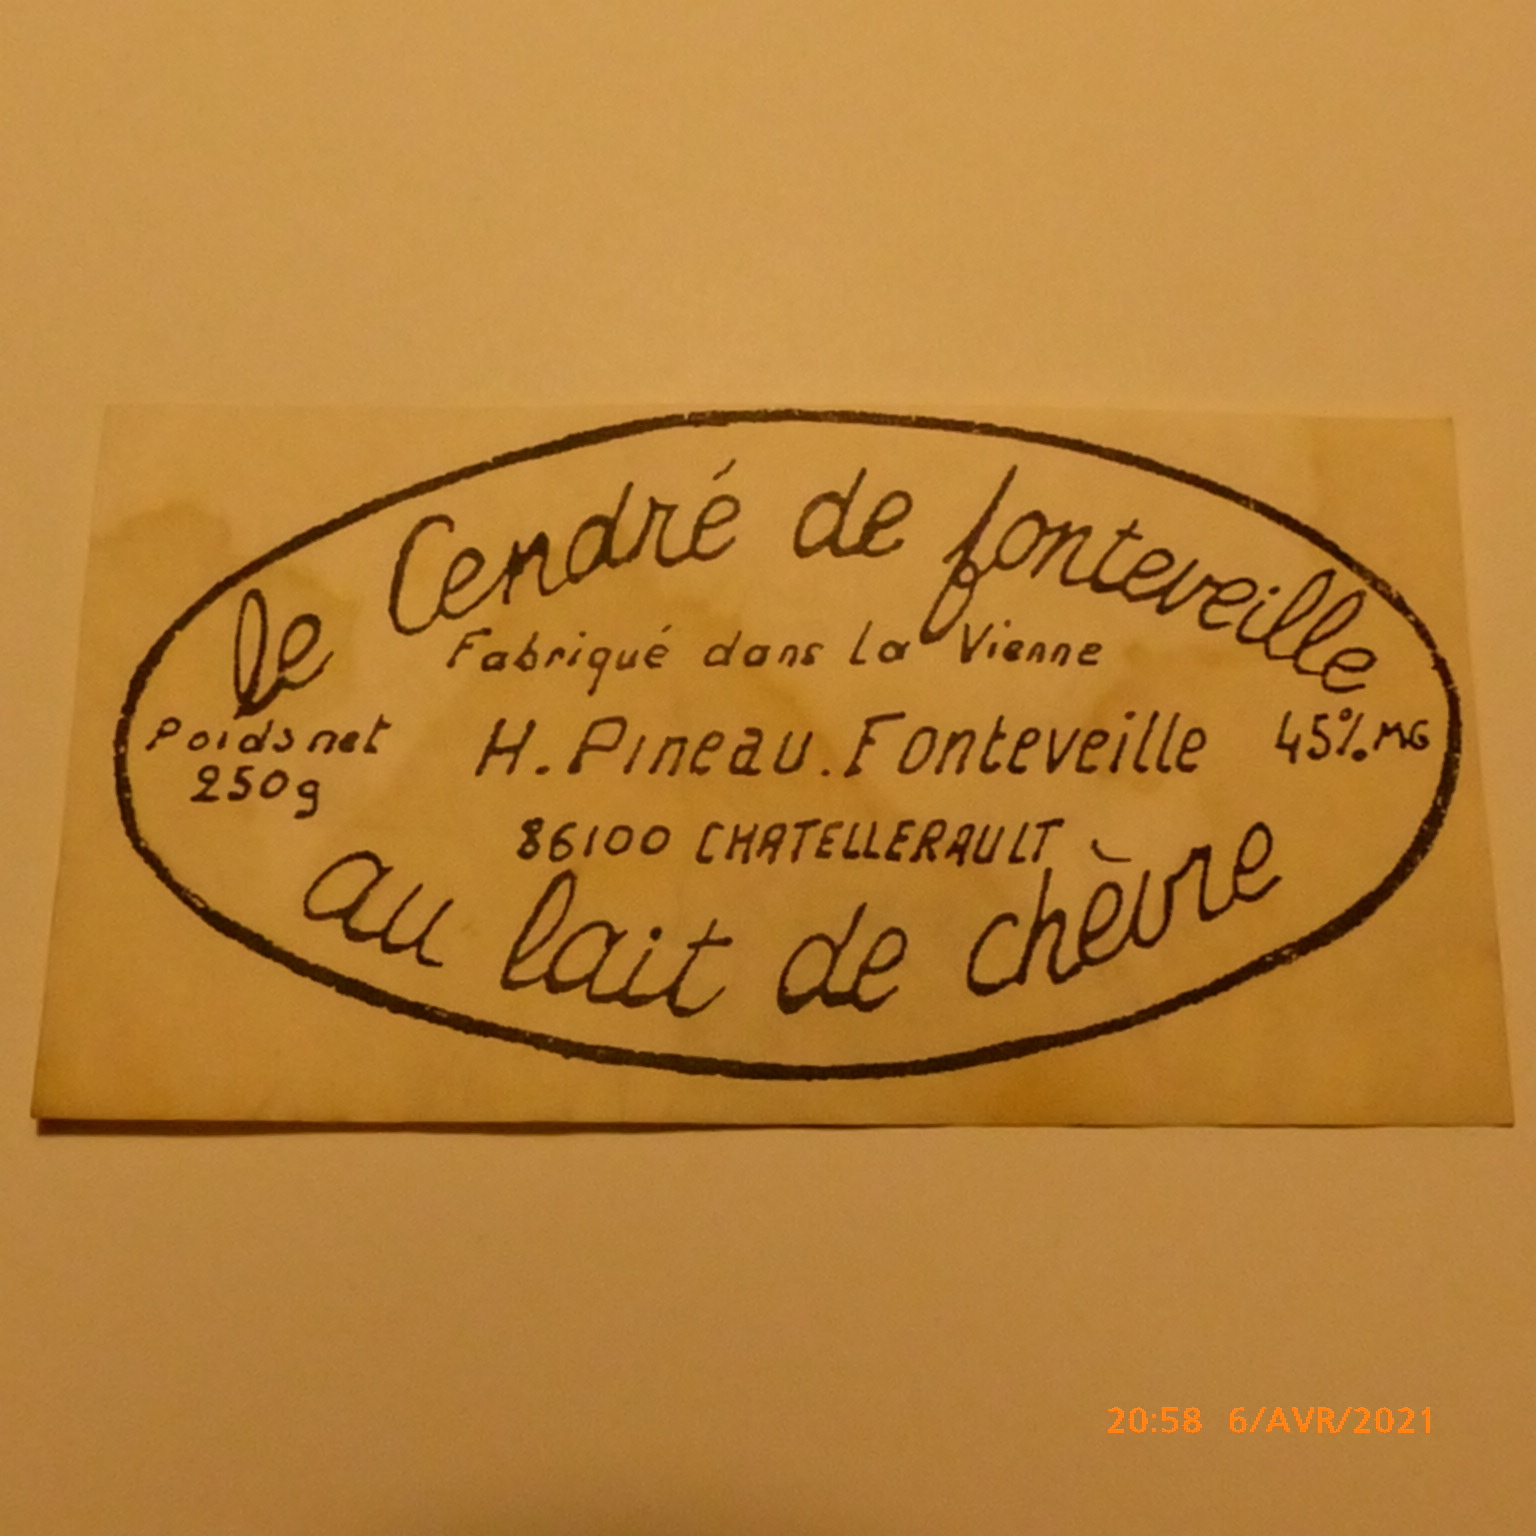 le Cendré de fonteveille
Fabriqué dans la Vienne
Poids net
250g
H. Pineau. Fonteveille
45% MG
86100 CHATELLERAULT
au lait de chèvre
20:58 6/AVR/2021